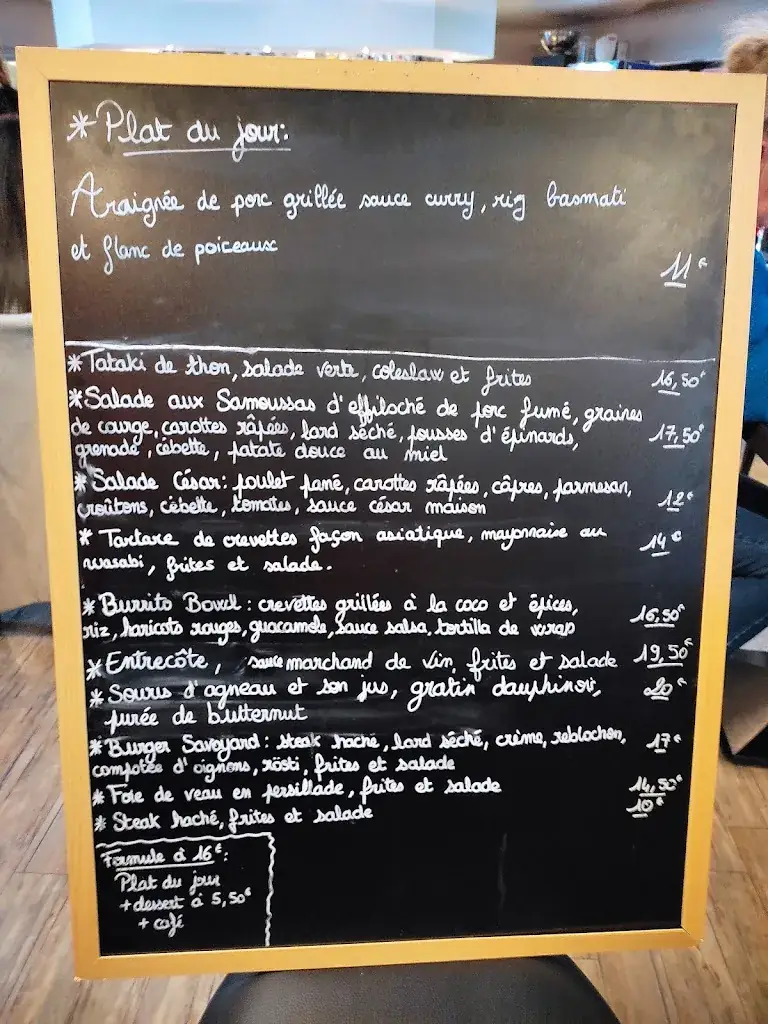 * Plat du jour:
Araignée de porc grillée sauce curry, riz basmati
et flanc de poiceaux
11€
* Tataki de thon, salade verte, coleslaw et frites 16,50€
* Salade aux Samoussas d'effiloché de porc fumé, graines
de courge, carottes râpées, lard séché, pousses d'épinards, 17,50€
grenade, cébette, patate douce au miel
* Salade César: poulet pané, carottes râpées, câpres, parmesan,
croûtons, cébette, tomates, sauce césar maison 12€
* Tartare de crevettes façon asiatique, mayonnaise au 14€
wasabi, frites et salade.
* Burrito Bowl: crevettes grillées à la coco et épices, 16,50€
riz, haricots rouges, guacamole, sauce salsa, tortilla de wrap
* Entrecôte, sauce marchand de vin, frites et salade 19,50€
* Souris d'agneau et son jus, gratin dauphinois, 20€
purée de butternut
* Burger Savoyard: steak haché, lard séché, crème, reblochon, 17€
compotée d'oignons, rösti, frites et salade
* Foie de veau en persillade, frites et salade 14,50€
* Steak haché, frites et salade 10€
Formule à 16€:
Plat du jour
+ dessert à 5,50€
+ café